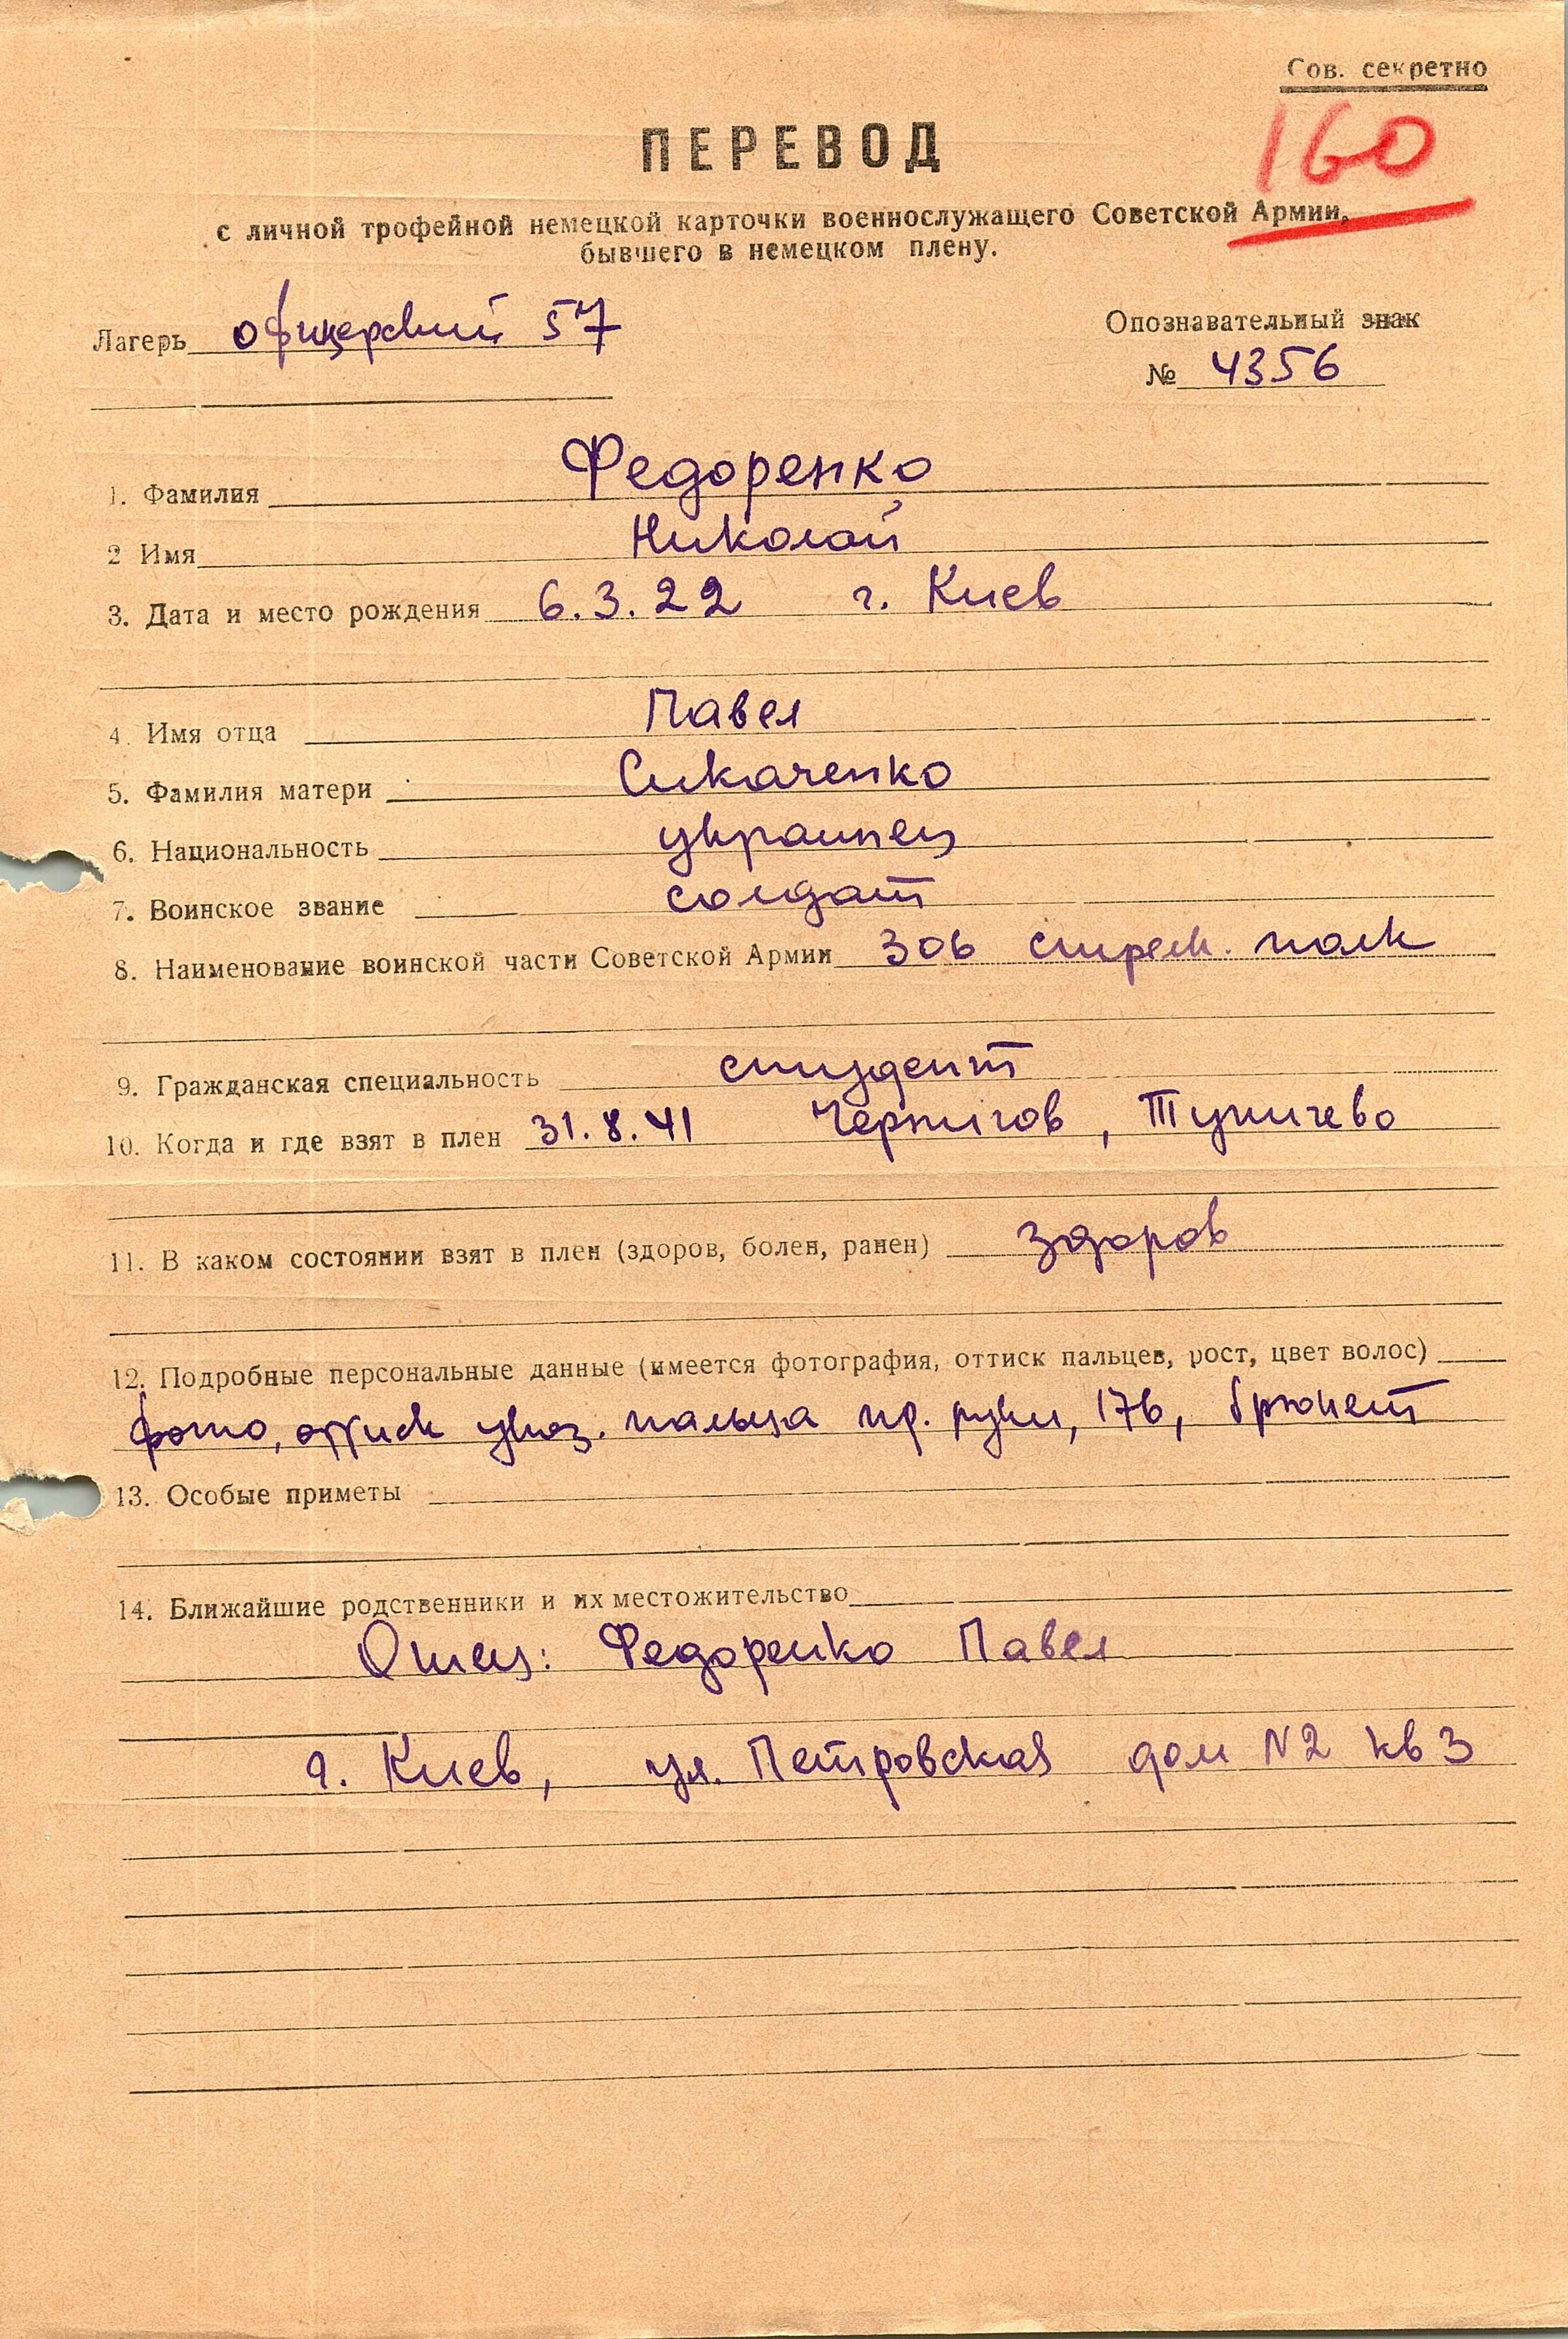 Сов. секретно
160
ПЕРЕВОД
с личной трофейной немецкой карточки военнослужащего Советской Армии,
бывшего в немецком плену.
Лагерь офицерский 57
Опознавательный знак
№ 4356
1. Фамилия Федоренко
2 Имя Николай
3. Дата и место рождения 6.3.22 г. Киев
4. Имя отца Павел
5. Фамилия матери Сикаченко
6. Национальность украинец
7. Воинское звание солдат
8. Наименование воинской части Советской Армии 306 стрелк. полк
9. Гражданская специальность студент
10. Когда и где взят в плен 31.8.41 Чернигов, Тупичево
11. В каком состоянии взят в плен (здоров, болен, ранен) здоров
12. Подробные персональные данные (имеется фотография, оттиск пальцев, рост, цвет волос)
фото, оттиск указ. пальца пр. руки, 176, брюнет
13. Особые приметы
14. Ближайшие родственники и их местожительство
Отец: Федоренко Павел
г. Киев, ул. Петровская дом N2 кв 3